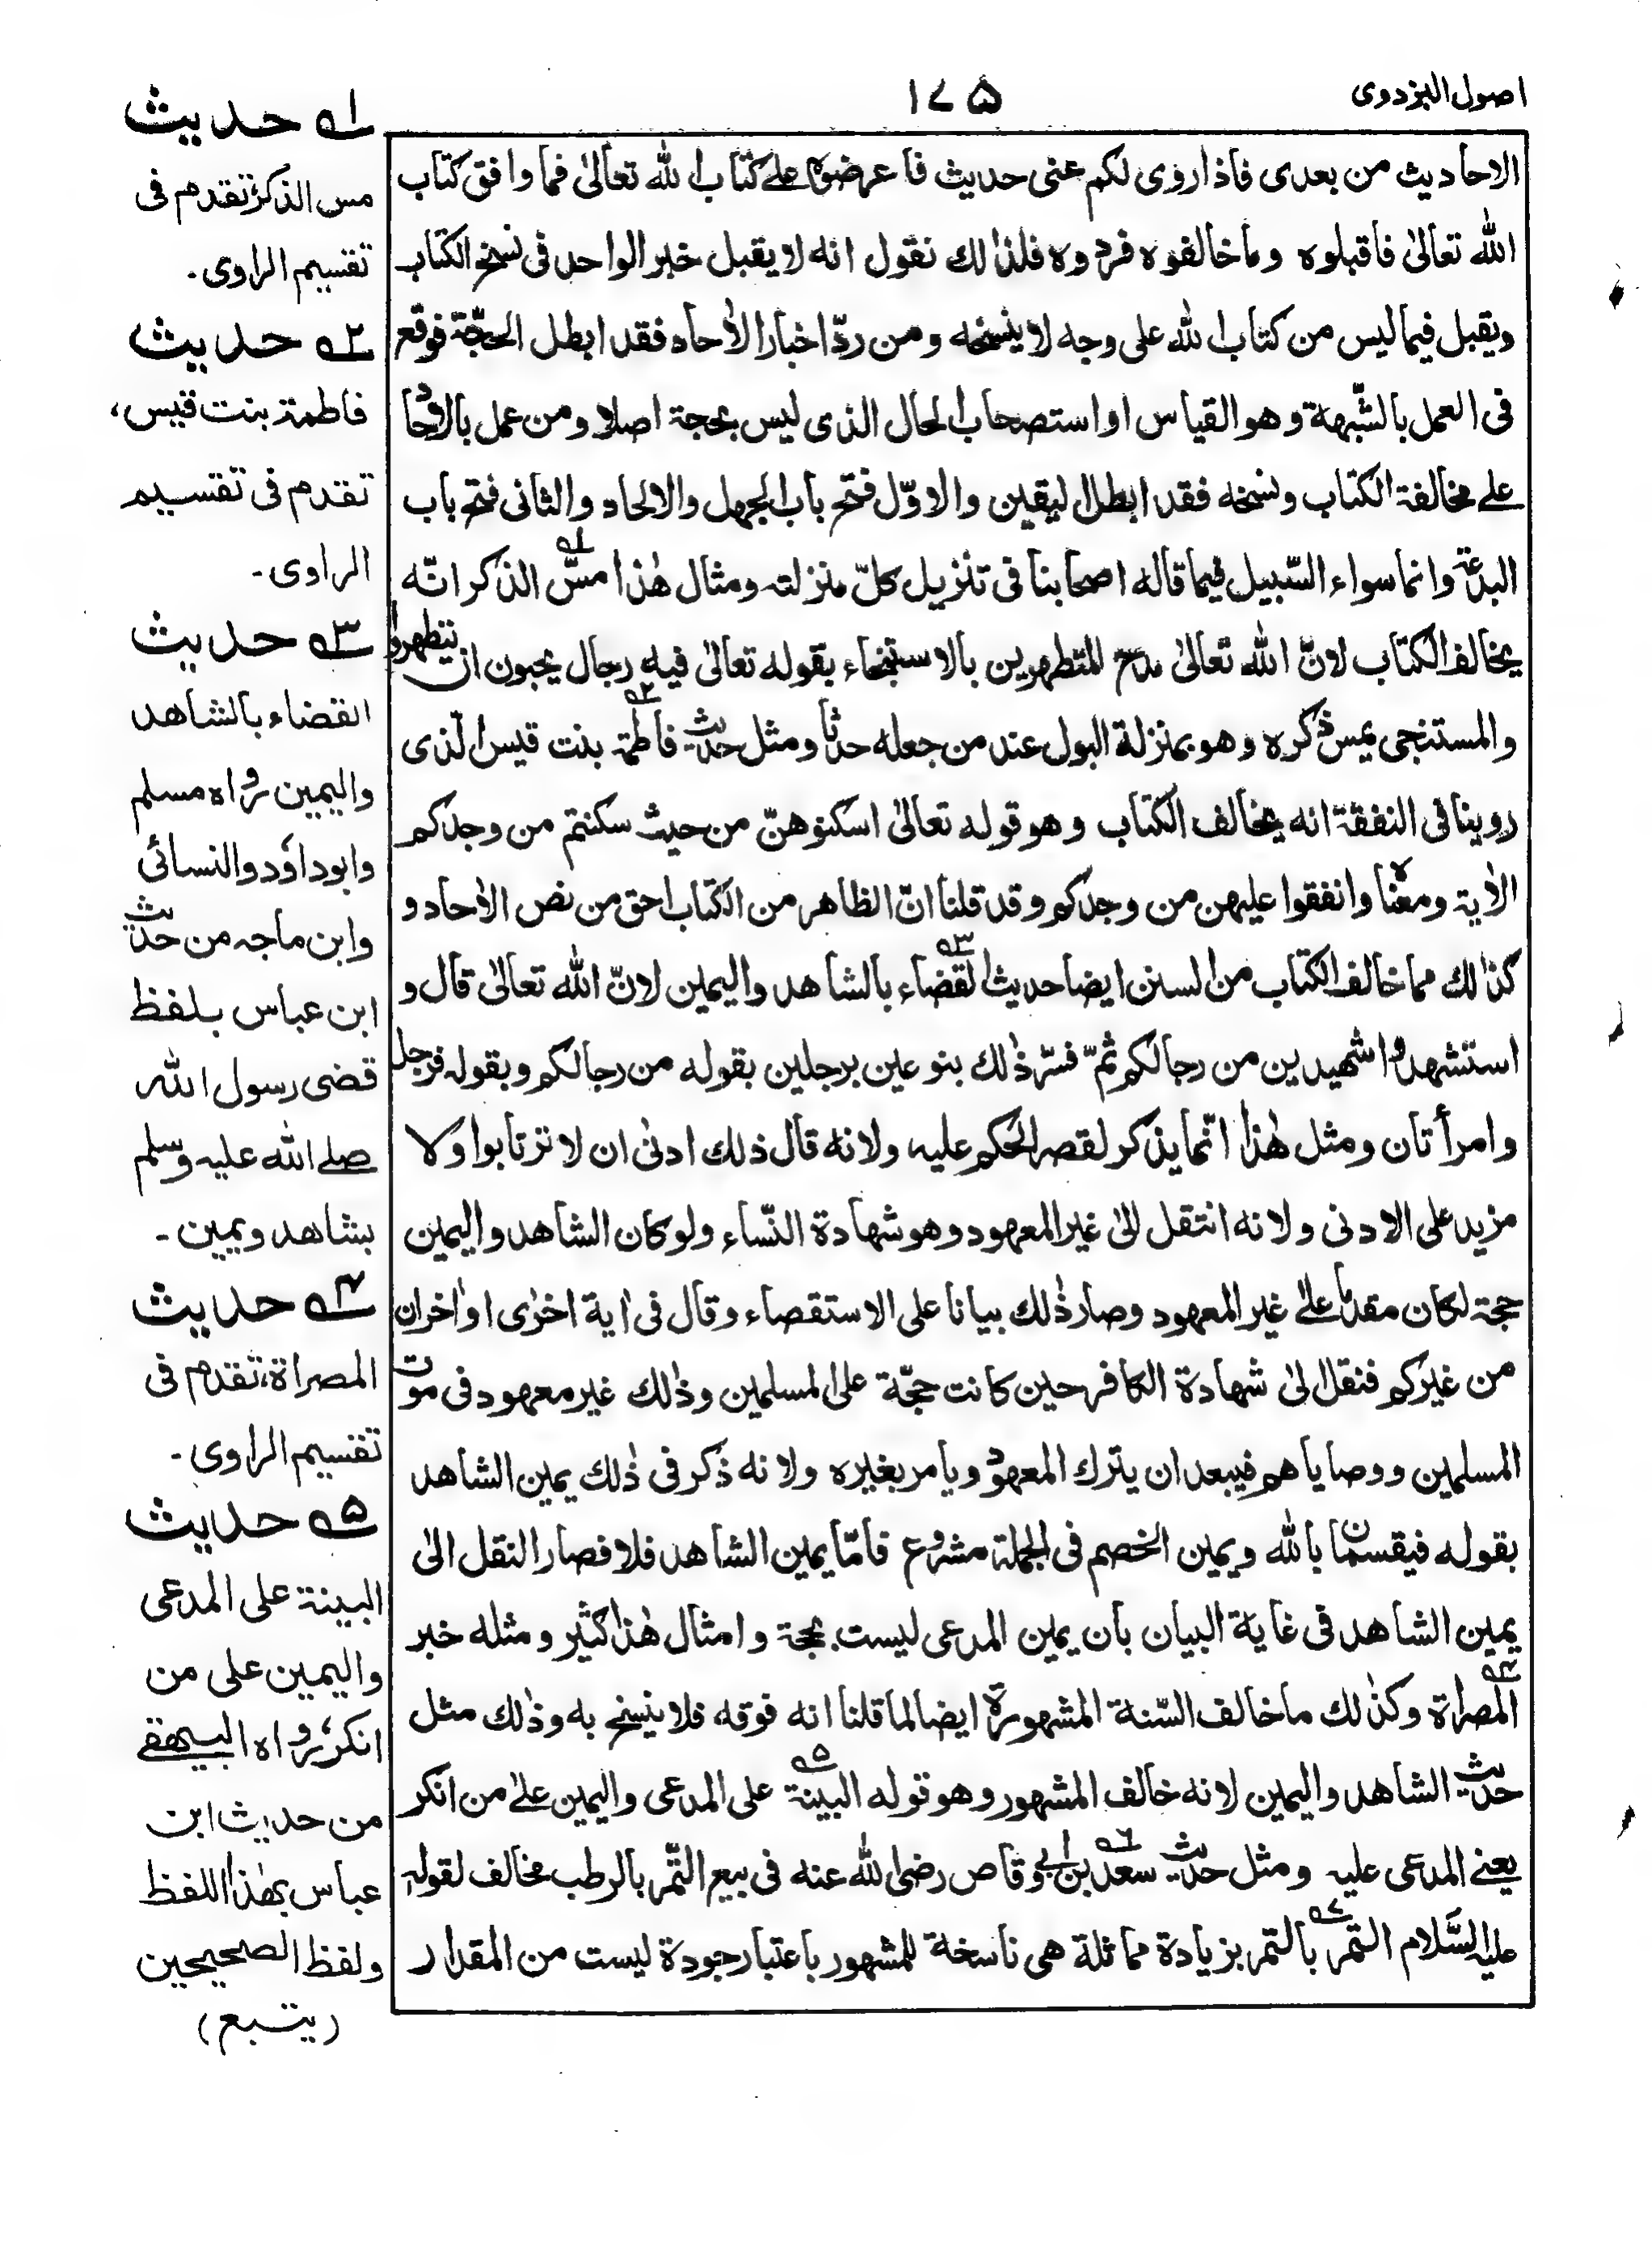 اصول البزدوی
۱۷۵
الاحادیث من بعدی فاذا روی لکم عنی حدیث فاعرضوہ علے کتاب اللہ تعالیٰ فما وافق کتاب
اللہ تعالیٰ فاقبلوہ وما خالفوہ فردوہ فلذالك نقول انہ لا یقبل خبر الواحد فی نسخ الکتاب
ویقبل فیما لیس من کتاب اللہ علی وجہ لا ینسخہ ومن ردّ اخبار الاٰحاد فقد ابطل الحجّۃ فوقع
فی العمل بالشّبھۃ وھو القیاس او استصحاب الحال الذی لیس بحجۃ اصلا ومن عمل بالاٰحاد
علے مخالفۃ الکتاب ونسخہ فقد ابطل الیقین والاوّل فتح باب الجھل والالحاد والثانی فتح باب
البدعۃ وانما سواء السّبیل فیما قالہ اصحابنا فی تنزیل کلّ منزلتہ ومثال ھٰذا مسّ الذکر انّہ
یخالف الکتاب لانّ اللہ تعالیٰ مدح المتطھرین بالاستنجاء بقولہ تعالیٰ فیہ رجال یحبون ان یتطھروا
والمستنجی یمس ذکرہ وھو بمنزلۃ البول عند من جعلہ حدثا ومثل حدیث فاطمۃ بنت قیس الّذی
روینا فی النفقۃ انہ یخالف الکتاب وھو قولہ تعالیٰ اسکنوھنّ من حیث سکنتم من وجدکم
الاٰیۃ ومعناہ وانفقوا علیھن من وجدکم وقد قلنا انّ الظاھر من الکتاب احق من نص الاٰحاد و
کذالك مما خالف الکتاب من السنن ایضا حدیث القضاء بالشاھد والیمین لانّ اللہ تعالیٰ قال و
استشھدوا شھیدین من رجالکم ثمّ فسّر ذٰلك بنوعین برجلین بقولہ من رجالکم وبقولہ فرجل
وامرأتان ومثل ھٰذا انّما یذکر لقصر الحکم علیہ ولانہ قال ذلك ادنیٰ ان لا ترتابوا ولا
مزید علی الادنی ولانہ انتقل الیٰ غیر المعھود وھو شھادۃ النّساء ولو کان الشاھد والیمین
حجۃ لکان مقدما علےٰ غیر المعھود وصار ذٰلك بیانا علی الاستقصاء وقال فی اٰیۃ اخرٰی او اٰخران
من غیرکم فنقل الیٰ شھادۃ الکافر حین کانت حجّۃ علی المسلمین وذٰلك غیر معھود فی موت
المسلمین ووصایاھم فیبعد ان یترك المعھود ویامر بغیرہ ولانہ ذکر فی ذٰلك یمین الشاھد
بقولہ فیقسمان باللہ ویمین الخصم فی الجملۃ مشروع فامّا یمین الشاھد فلا فصار النقل الیٰ
یمین الشاھد فی غایۃ البیان بان یمین المدعی لیست بحجۃ وامثال ھٰذا کثیر ومثلہ خبر
المصراۃ وکذٰلك ما خالف السّنۃ المشھورۃ ایضا لما قلنا انہ فوقہ فلا ینسخ بہ وذٰلك مثل
حدیث الشاھد والیمین لانہ خالف المشھور وھو قولہ البینۃ علی المدعی والیمین علےٰ من انکر
یعنے المدعی علیہ ومثل حدیث سعد بن ابی وقاص رضی اللہ عنہ فی بیع التّمر بالرطب مخالف لقولہ
علیہ السّلام التمر بالتمر بزیادۃ مماثلۃ ھی ناسخۃ للمشھور باعتبار جودۃ لیست من المقدار
۱ حدیث
مس الذکر، تقدم فی
تقسیم الراوی۔
۲ حدیث
فاطمۃ بنت قیس،
تقدم فی تقسیم
الراوی۔
۳ حدیث
القضاء بالشاھد
والیمین رواہ مسلم
وابوداؤد والنسائی
وابن ماجہ من حدیث
ابن عباس بلفظ
قضی رسول اللہ
صلے اللہ علیہ وسلم
بشاھد ویمین۔
۴ حدیث
المصراۃ، تقدم فی
تقسیم الراوی۔
۵ حدیث
البینۃ علی المدعی
والیمین علی من
انکر، رواہ البیھقے
من حدیث ابن
عباس بھٰذا اللفظ
ولفظ الصحیحین
(یتبع)